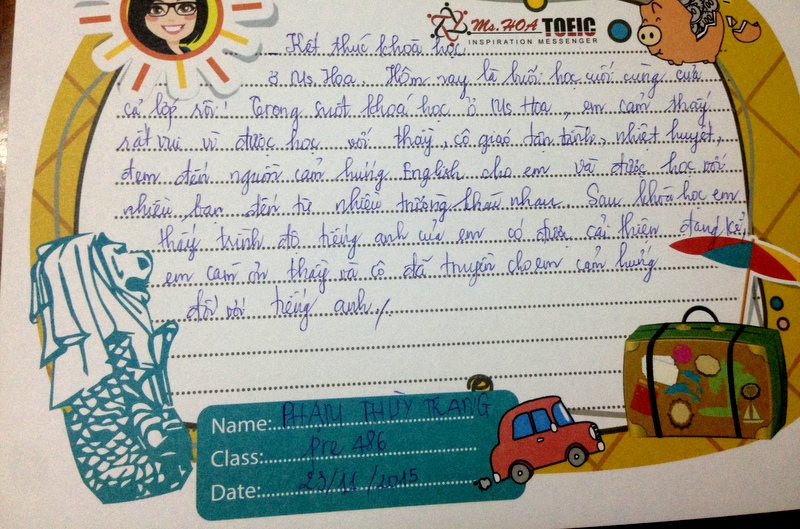 Ms.HOA TOEIC
INSPIRATION MESSENGER
Kết thúc khoá học
ở Ms. Hoa. Hôm nay là buổi học cuối cùng của
cả lớp rồi! Trong suốt khoá học ở Ms Hoa, em cảm thấy
rất vui vì được học với thầy, cô giáo tận tình, nhiệt huyết,
đem đến nguồn cảm hứng English cho em và được học với
nhiều bạn đến từ nhiều trường khác nhau. Sau khoá học em
thấy trình độ tiếng anh của em có được cải thiện đáng kể
em cảm ơn thầy và cô đã truyền cho em cảm hứng
đối với tiếng anh./.
Name: PHẠM THÙY TRANG
Class: Pre 486
Date: 23/11/2015